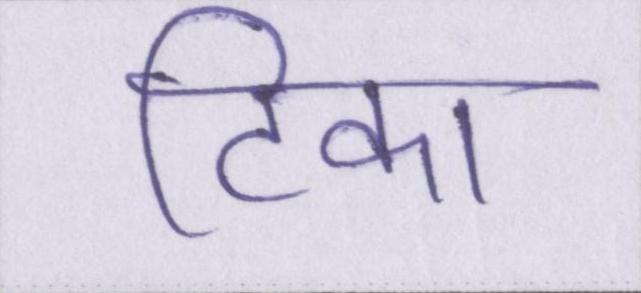 टिका